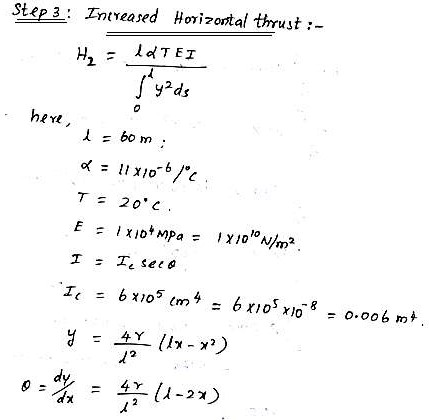 Step 3: Increased Horizontal thrust :-
H₂ = lαTEI / ∫₀ˡ y²ds
here,
l = 60m ;
α = 11×10⁻⁶/°c.
T = 20°c.
E = 1×10⁴MPa = 1×10¹⁰N/m².
I = I꜀ secθ
I꜀ = 6×10⁵ cm⁴ = 6×10⁵×10⁻⁸ = 0.006 m⁴.
y = 4r/l² (lx-x²)
θ = dy/dx = 4r/l² (l-2x)